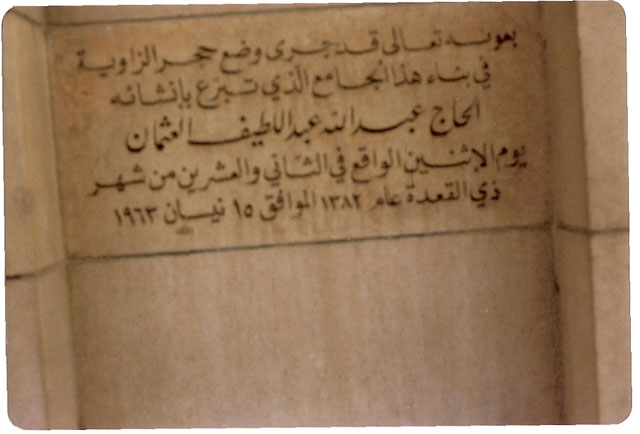 بعونه تعالى قد جرى وضع حجر الزاوية
في بناء هذا الجامع الذي تبرّع بإنشائه
الحاج عبد الله عبد اللطيف العثمان
يوم الإثنين الواقع في الثاني والعشرين من شهر
ذي القعدة عام ١٣٨٢ الموافق ١٥ نيسان ١٩٦٣